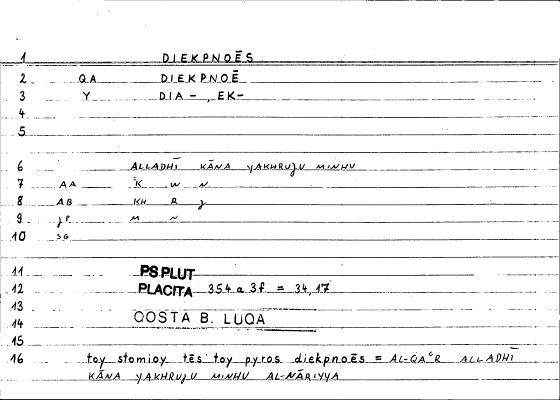 1 DIEKPNOĒS
2 QA DIEKPNOĒ
3 Y DIA-, EK-
4
5
6 ALLADHĪ KĀNA YAKHRUJU MINHU
7 AA K W N
8 AB KH R J
9 JP M N
10 SG
11 PS PLUT
12 PLACITA 354 a 3f = 34,17
13
14 QOSTA B. LUQA
15
16 toy stomioy tēs toy pyros diekpnoēs = AL-QAʿR ALLADHĪ
KĀNA YAKHRUJU MINHU AL-NĀRIYYA